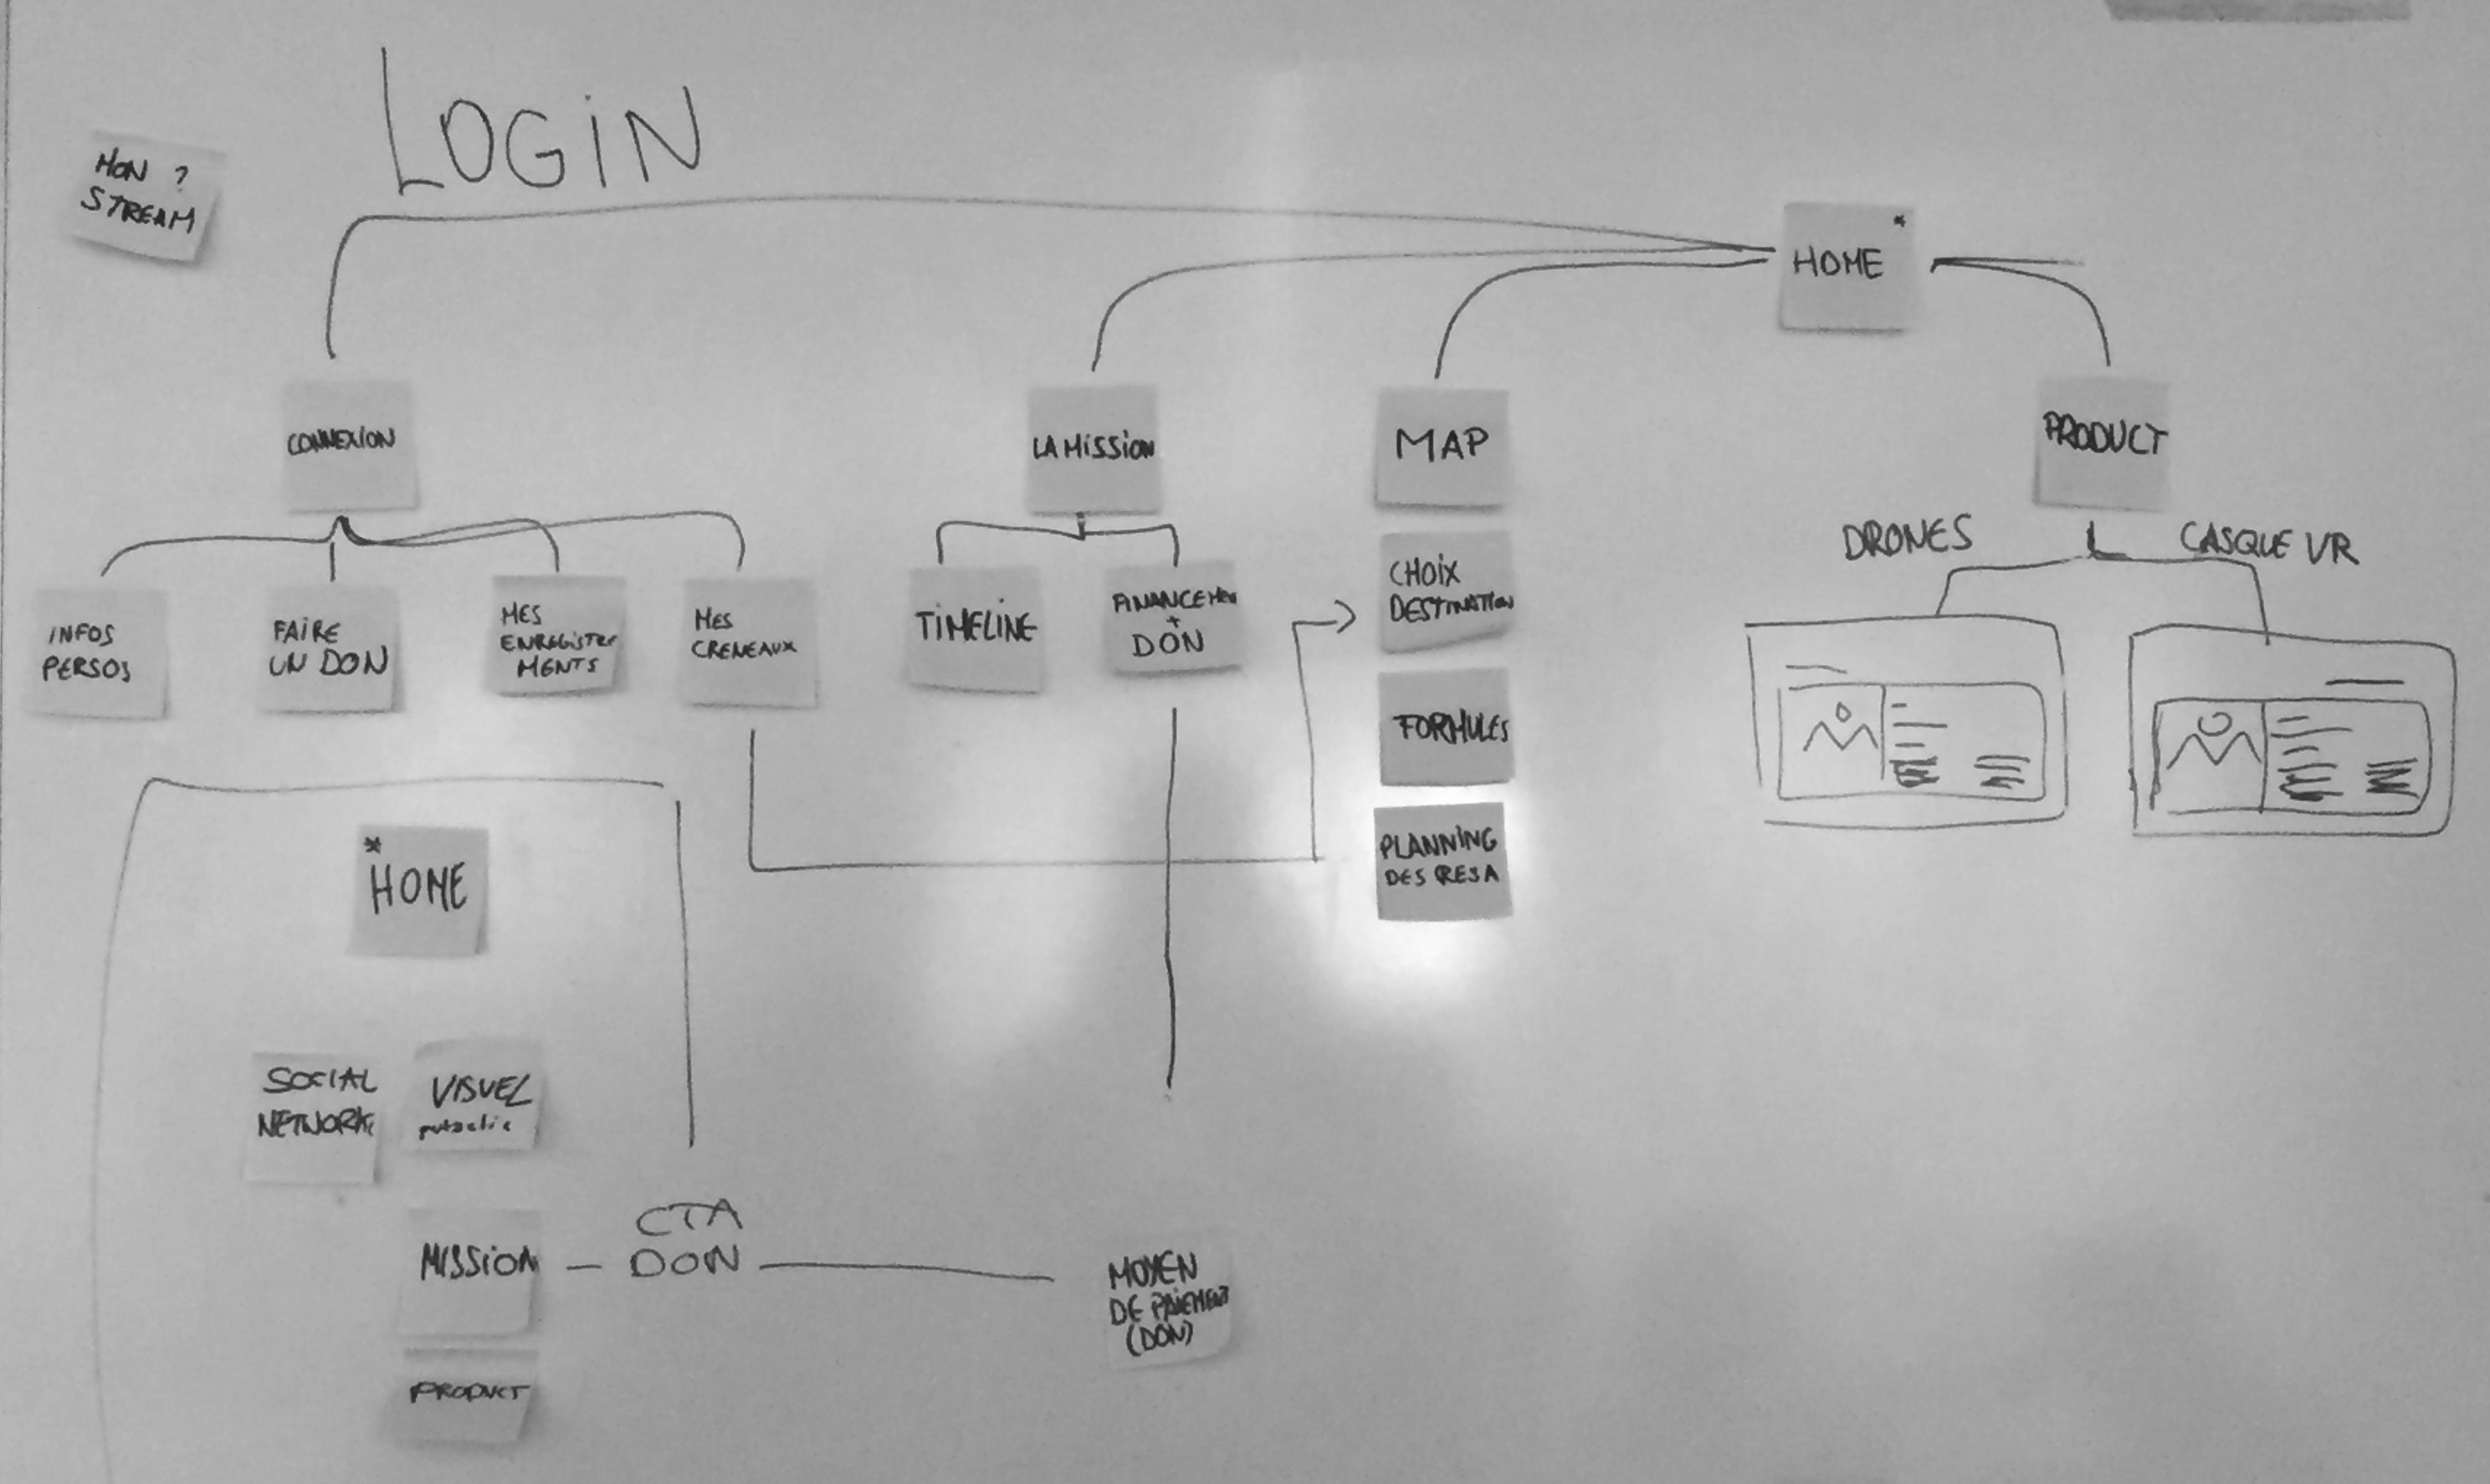 LOGIN
MON ?
STREAM
*
HOME
CONNEXION
LA MISSION
MAP
PRODUCT
DRONES
CASQUE VR
INFOS
PERSOS
FAIRE
UN DON
MES
ENREGISTRE
MENTS
MES
CRENEAUX
TIMELINE
FINANCEMENT
+
DON
CHOIX
DESTINATION
FORMULES
PLANNING
DES RESA
*
HOME
SOCIAL
NETWORK
VISUEL
MISSION
CTA
DON
MOYEN
DE PAIEMENT
(DON)
PRODUCT